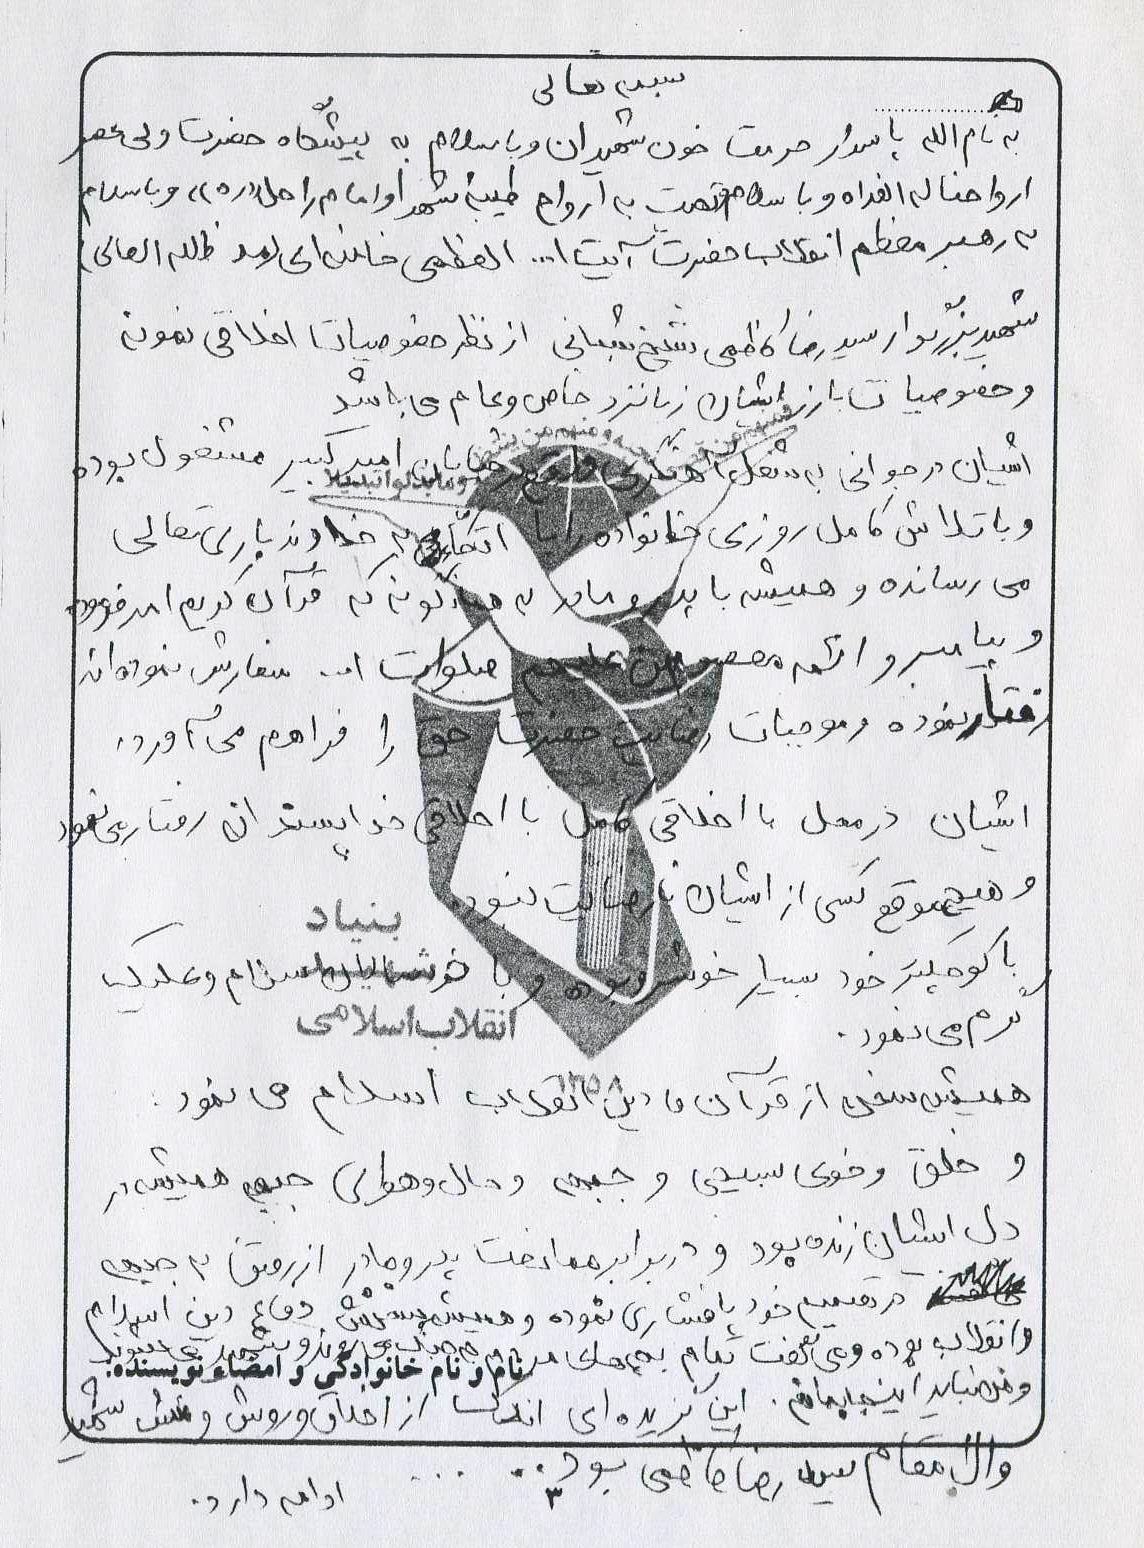 بسمه تعالی
به نام الله پاسدار حرمت خون شهیدان و با سلام به پیشگاه حضرت ولی عصر
ارواحنا له الفداه و با سلام و تحیت به ارواح طیبه شهدا و امام راحل «ره» و با سلام
به رهبر معظم انقلاب حضرت آیت ا... العظمی خامنه ای (مد ظله العالی)
شهید بزرگوار سید رضا کاظمی شیخ شبانی از نظر خصوصیات اخلاقی نمونه
و خصوصیات بارز ایشان زبانزد خاص و عام می باشد
ایشان در جوانی به شغل آهنگری واقع در خیابان امیر کبیر مشغول بوده
و ما بدلوا تبدیلا
و با تلاش کامل روزی خانواده را با اتکای به خداوند باری تعالی
می رسانده و همیشه با پدر و مادر به همانگونه که قرآن کریم امر فرموده
و پیامبر و ائمه معصومین علیهم صلوات اله سفارش نموده اند
رفتار نموده و موجبات رضایت حضرت حق را فراهم می آورد.
ایشان در محل با اخلاقی کامل با اخلاقی خداپسندانه رفتار می نمود
و هیچ موقع کسی از ایشان نارضایت نبود.
بنیاد
با کوچکتر خود بسیار خوشرو بوده و با سلام و علیک
گرم می نمود.
انقلاب اسلامی
۱۳۵۸
همیشه سخن از قرآن و دین انقلاب اسلام می نمود.
و خلق و خوی بسیجی و جبهه و حال و هوای جبهه همیشه در
دل ایشان زنده بود و در برابر ممانعت پدر و مادر از رفتن به جبهه
در تصمیم خود پافشاری نموده و همیشه دفاع دین اسلام
و انقلاب بوده و می گفت تمام بچه های مردم به جبهه می روند و شهید می شوند
نام و نام خانوادگی و امضاء نویسنده:
و من نباید اینجا بمانم. این گزیده ای از اخلاق و روش و منش شهید
والا مقام سید رضا کاظمی بود...
۳
ادامه دارد.